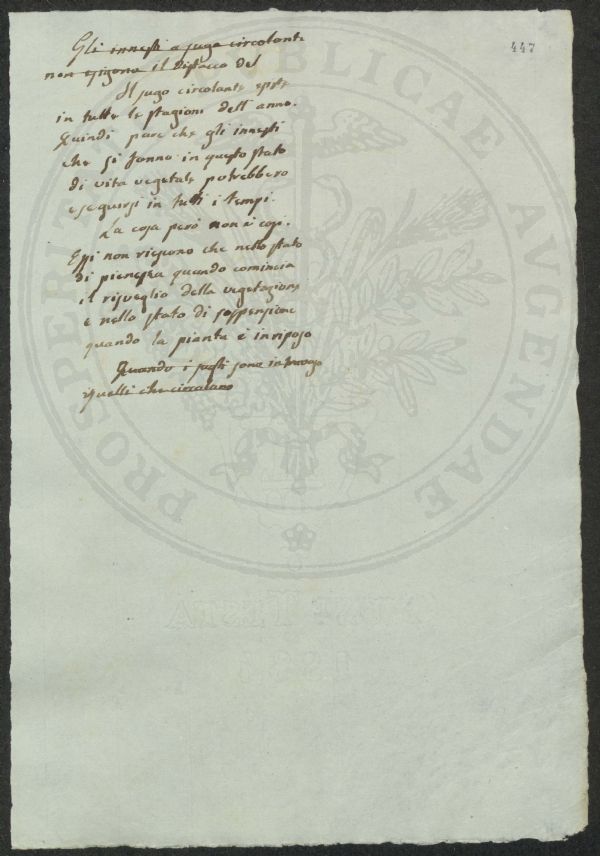 447
Gli innesti a sugo circolante
non esigono il distacco del
Il sugo circolante esiste
in tutte le stagioni dell'anno.
Quindi pare che gli innesti
che si fanno in questo stato
di vita vegetale potrebbero
eseguirsi in tutti i tempi.
La cosa però non è così.
Essi non riescono che nello stato
di pienezza quando comincia
il risveglio della vegetazione
e nello stato di sospensione
quando la pianta è in riposo
Quando i sughi sono in
quelli che circolano
PROSPERITATI PUBLICAE AUGENDAE